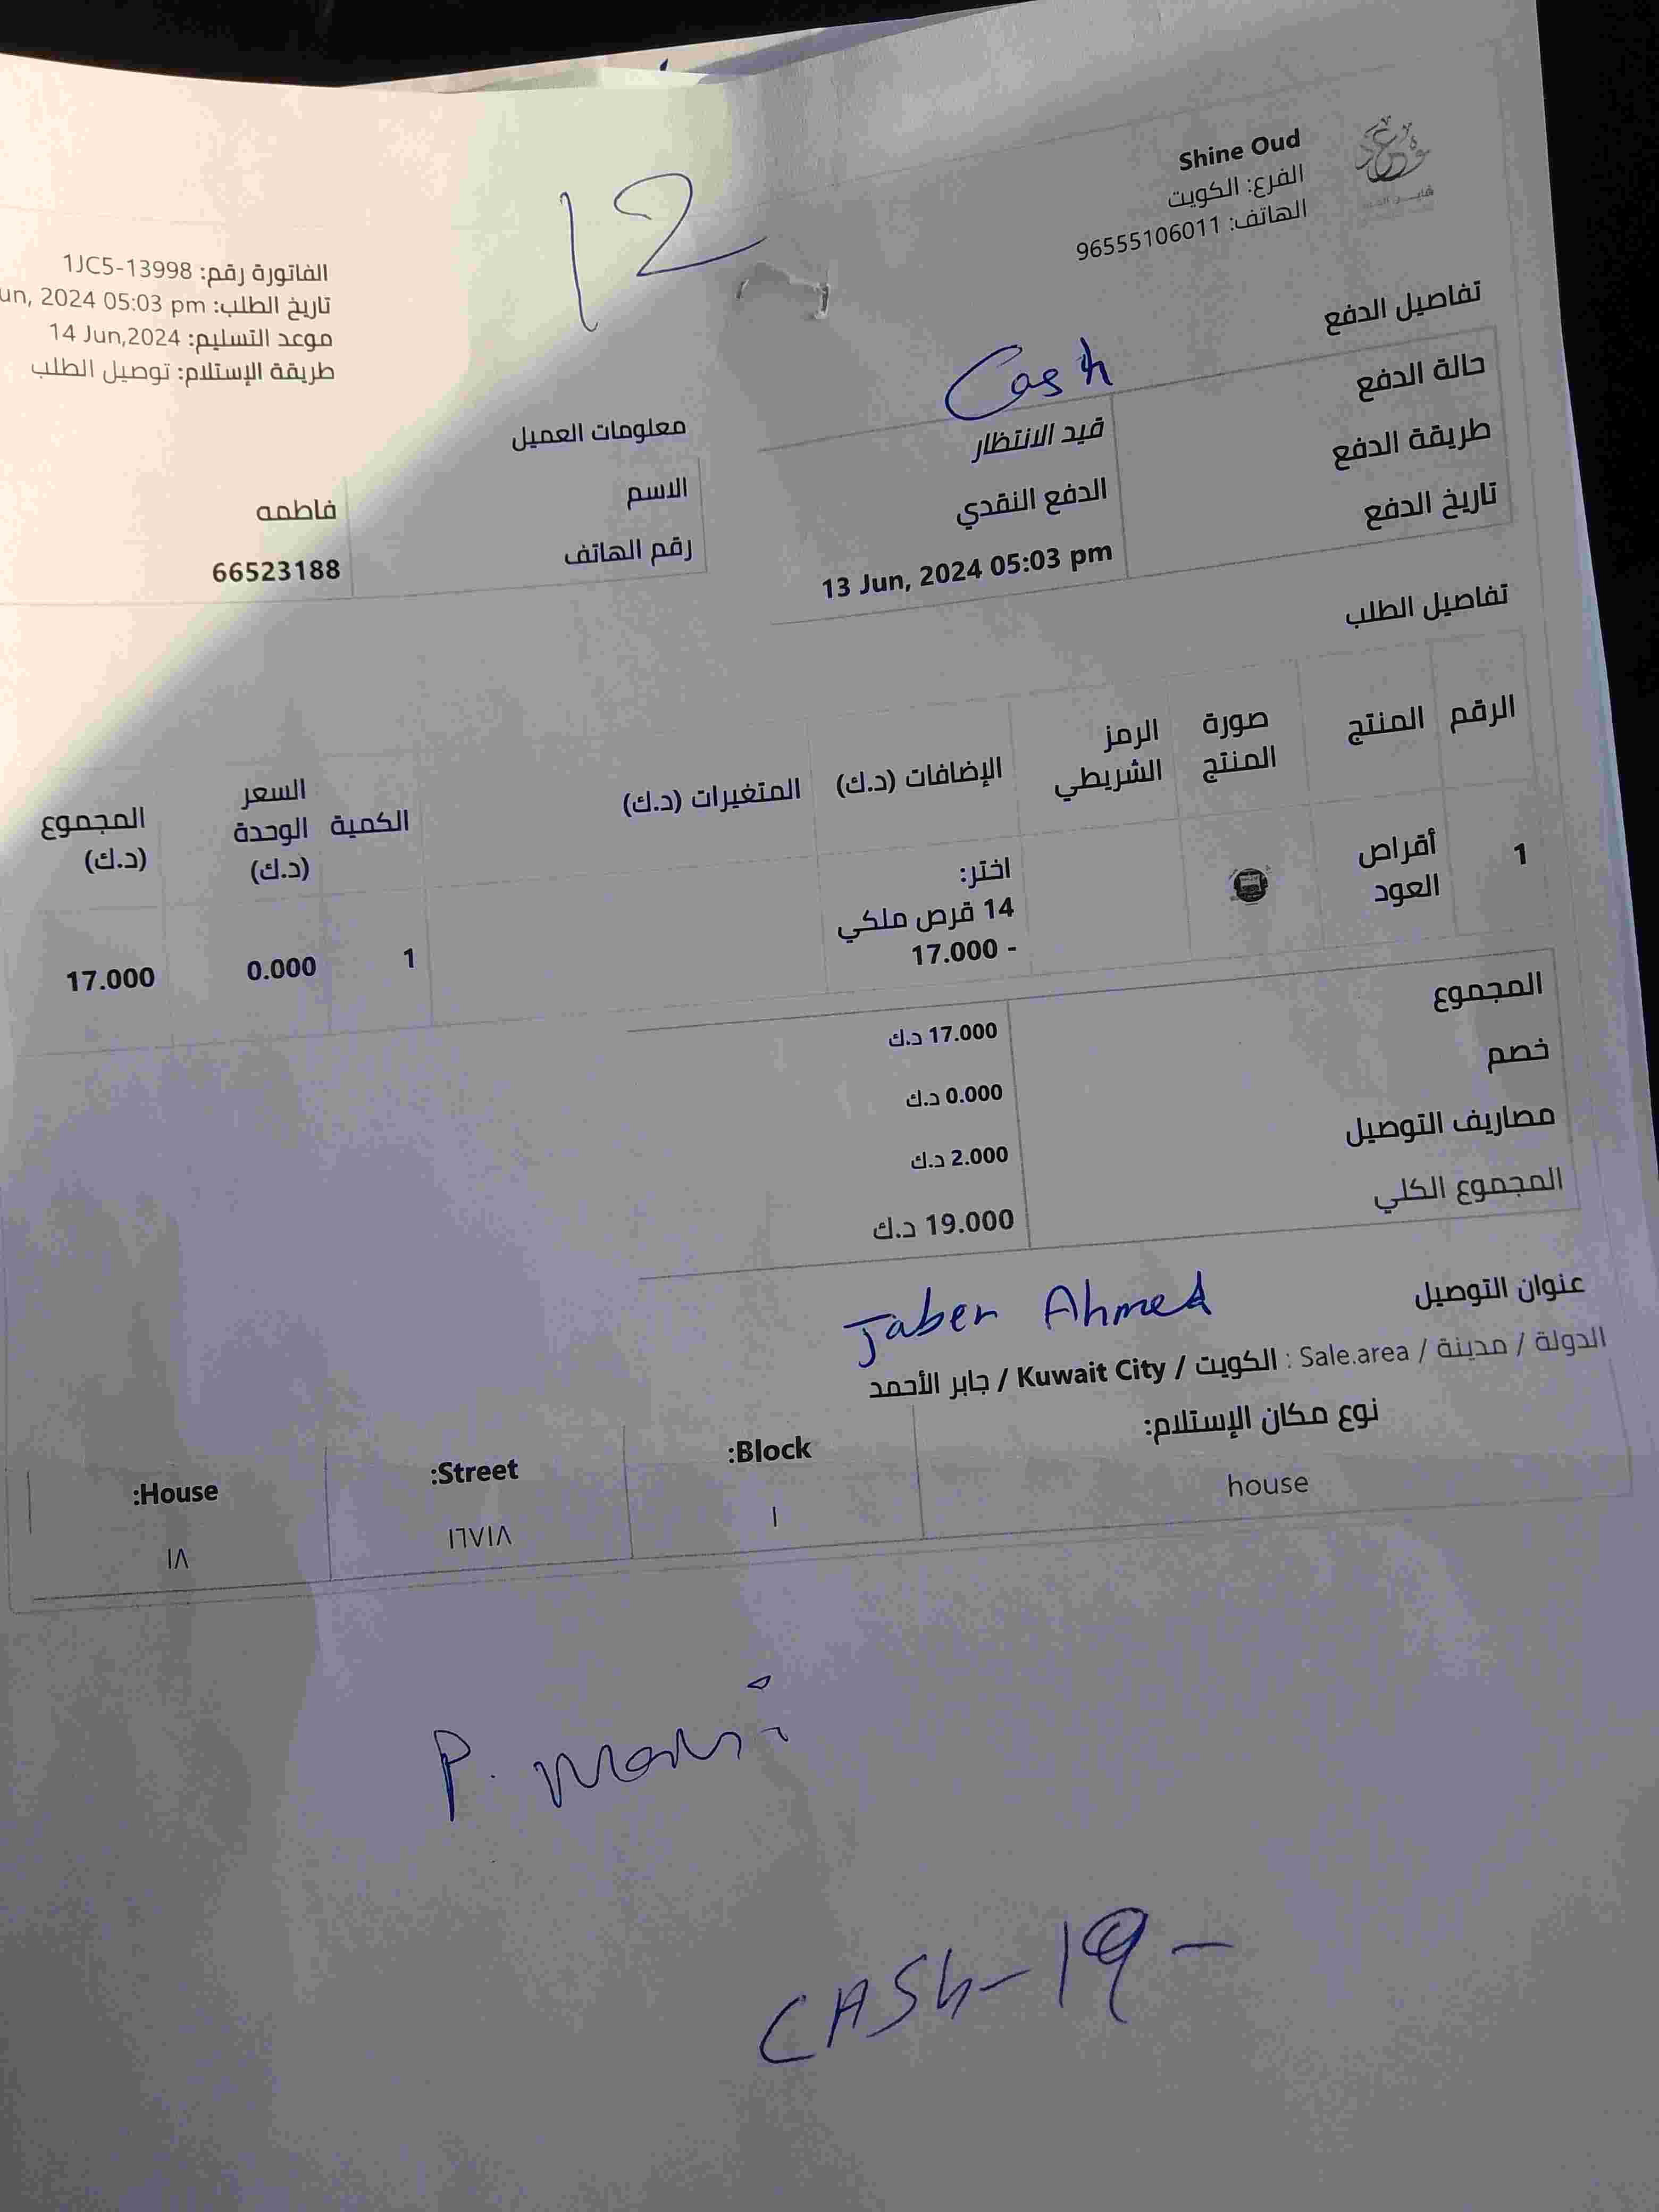 Shine Oud
الفرع: الكويت
الهاتف: 96555106011
12
الفاتورة رقم: 1JC5-13998
تاريخ الطلب: un, 2024 05:03 pm
موعد التسليم: 14 Jun,2024
طريقة الإستلام: توصيل الطلب
تفاصيل الدفع
Cash
حالة الدفع قيد الانتظار
طريقة الدفع الدفع النقدي
تاريخ الدفع 13 Jun, 2024 05:03 pm
معلومات العميل
الاسم فاطمه
رقم الهاتف 66523188
تفاصيل الطلب
الرقم المنتج صورة المنتج الرمز الشريطي الإضافات (د.ك) المتغيرات (د.ك) الكمية السعر الوحدة (د.ك) المجموع (د.ك)
1 أقراص العود اختر: 14 قرص ملكي - 17.000 1 0.000 17.000
المجموع 17.000 د.ك
خصم 0.000 د.ك
مصاريف التوصيل 2.000 د.ك
المجموع الكلي 19.000 د.ك
عنوان التوصيل
Jaber Ahmed
الدولة / مدينة / Sale.area : الكويت / Kuwait City / جابر الأحمد
نوع مكان الإستلام: Block: Street: House:
house ١ ١٨
CASh-19-